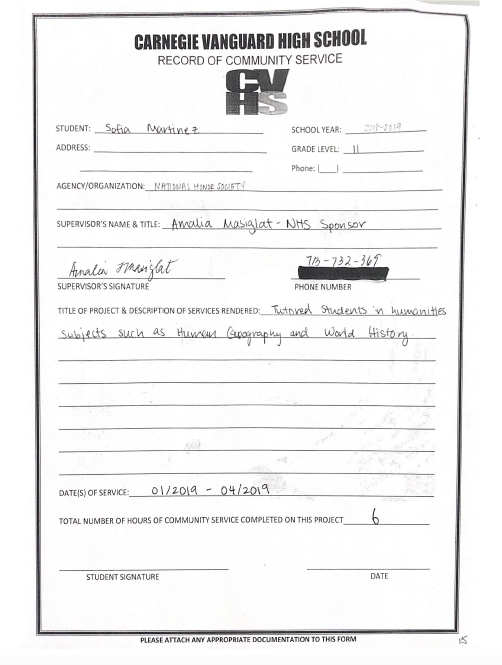 CARNEGIE VANGUARD HIGH SCHOOL
RECORD OF COMMUNITY SERVICE
CV
HS
STUDENT: Sofia Martinez SCHOOL YEAR: 2018-2019
ADDRESS: GRADE LEVEL: 11
Phone: ( )
AGENCY/ORGANIZATION: NATIONAL HONOR SOCIETY
SUPERVISOR'S NAME & TITLE: Amalia Masiglat - NHS Sponsor
Amalia Masiglat 713-732-369
SUPERVISOR'S SIGNATURE PHONE NUMBER
TITLE OF PROJECT & DESCRIPTION OF SERVICES RENDERED: Tutored students in humanities
subjects such as Human Geography and World History.
DATE(S) OF SERVICE: 01/2019 - 04/2019
TOTAL NUMBER OF HOURS OF COMMUNITY SERVICE COMPLETED ON THIS PROJECT 6
STUDENT SIGNATURE DATE
PLEASE ATTACH ANY APPROPRIATE DOCUMENTATION TO THIS FORM
15